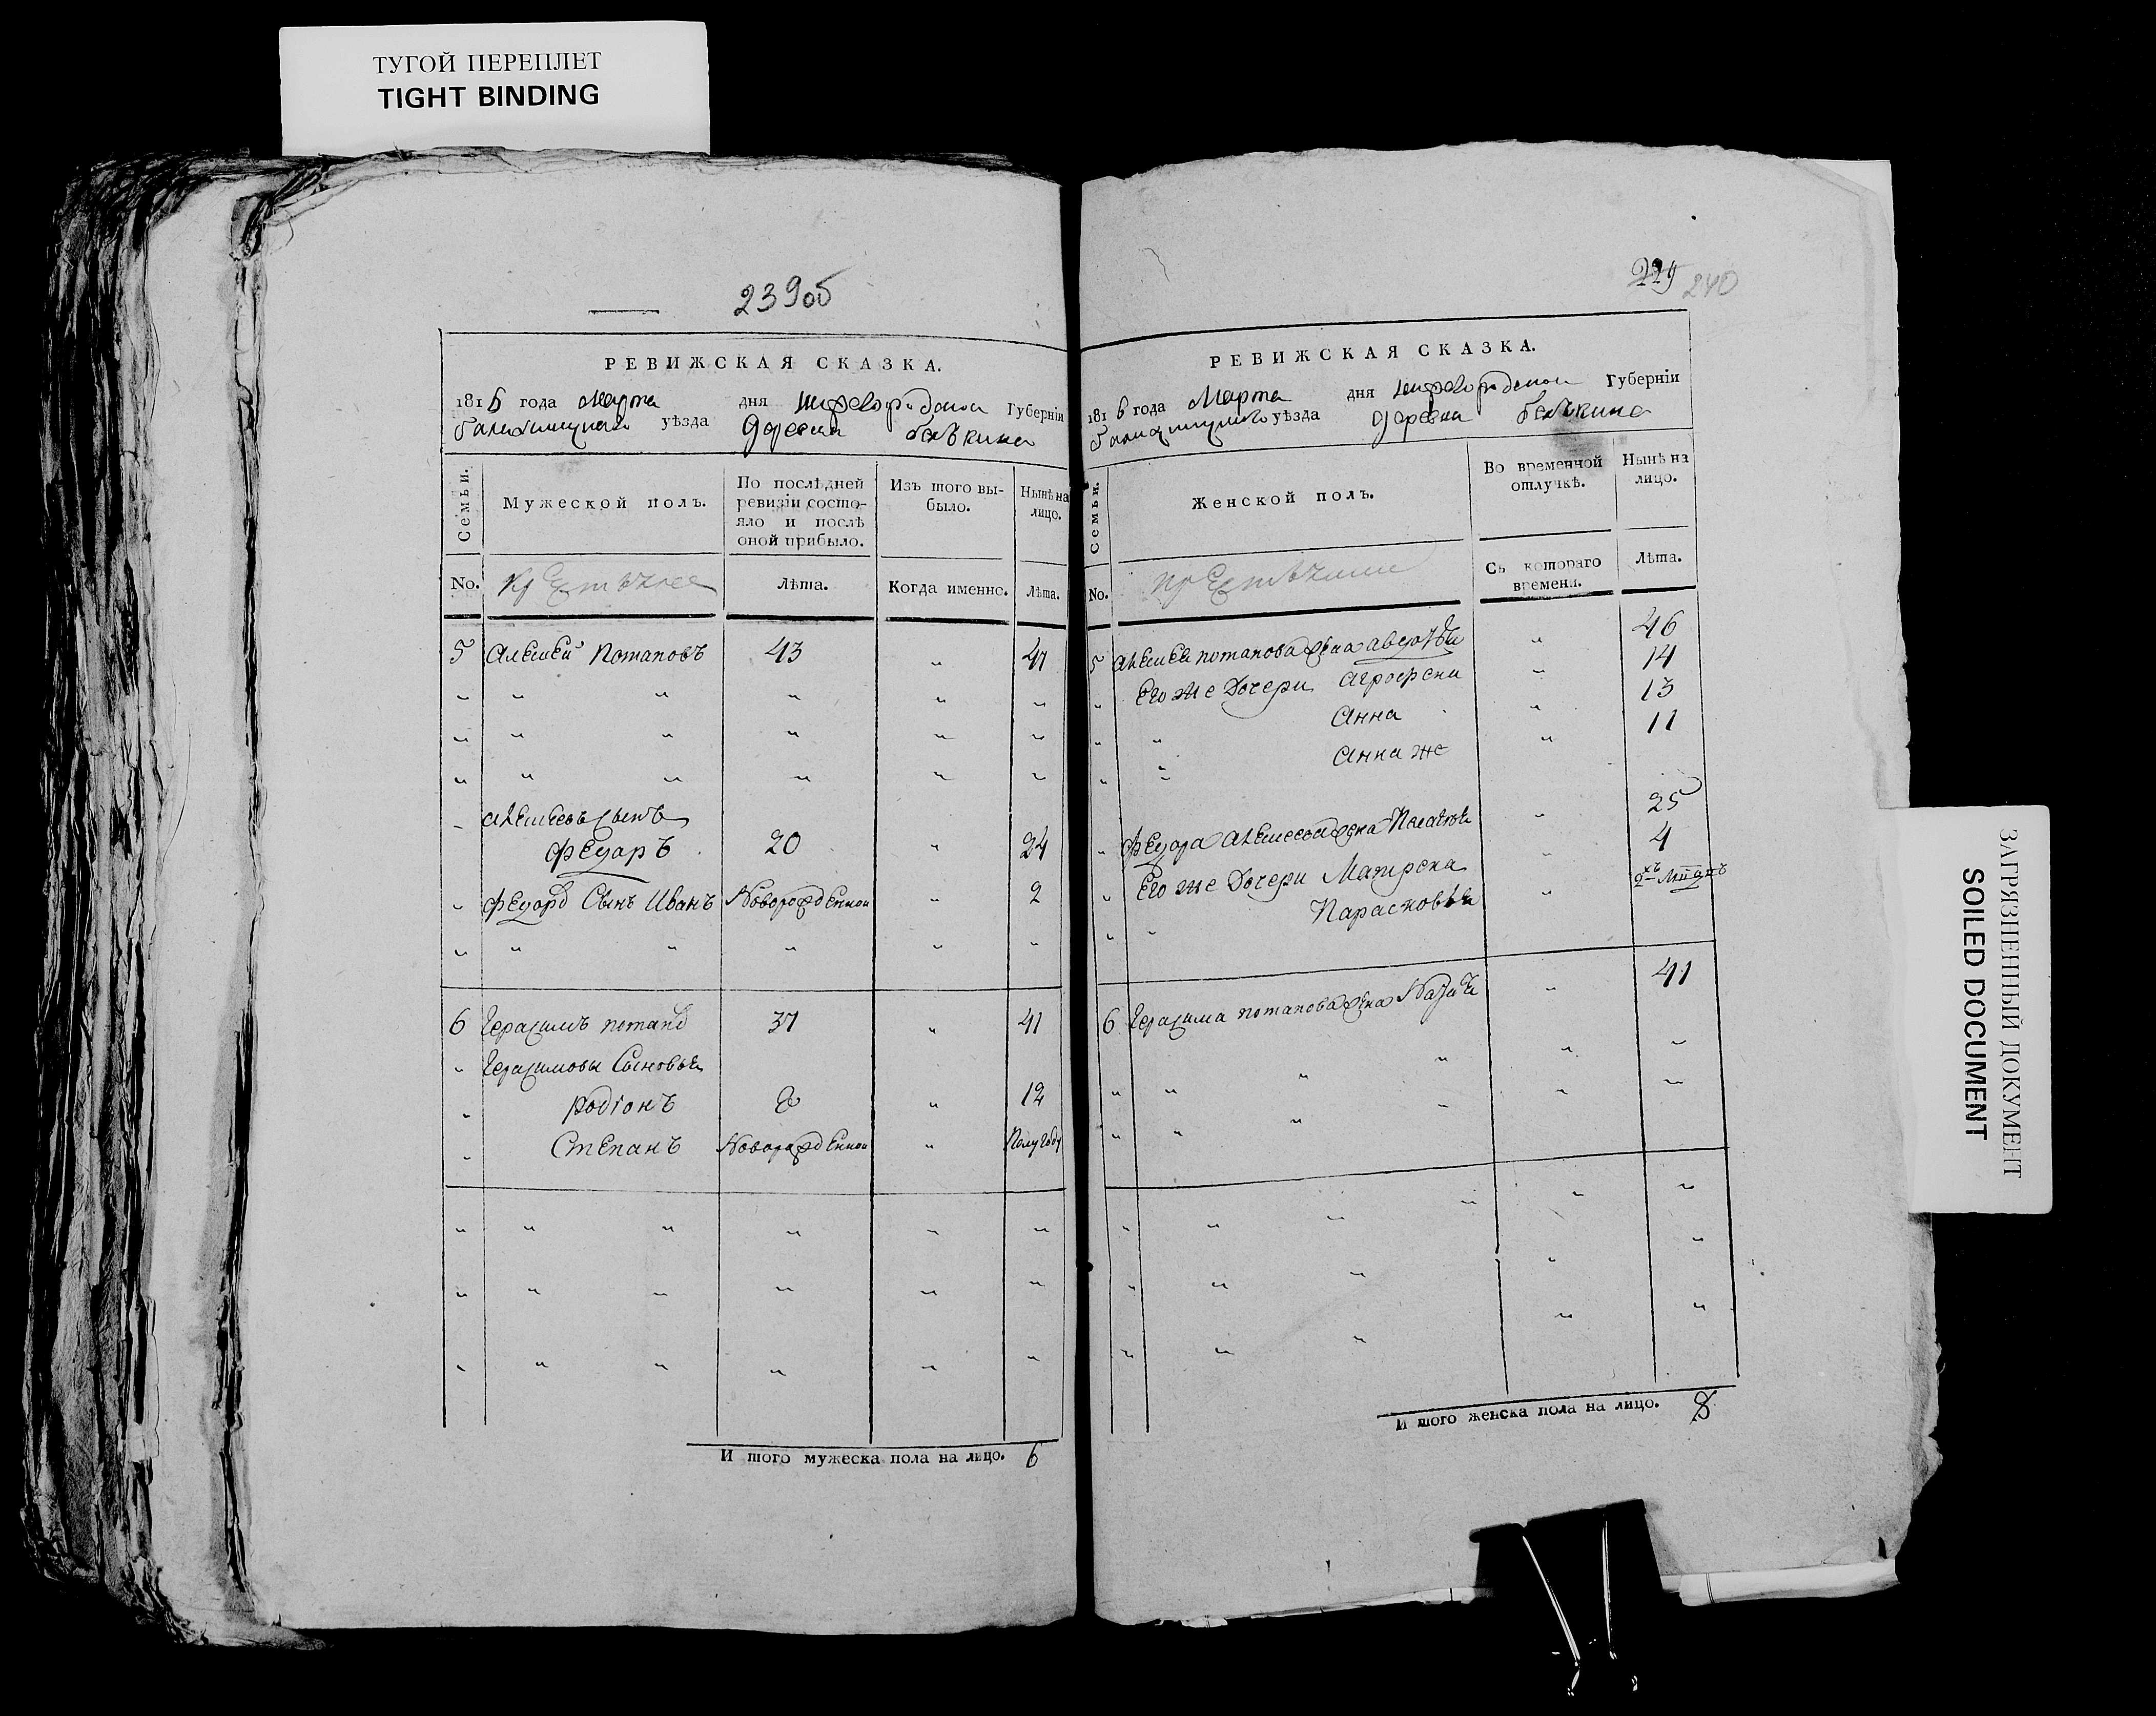 ТУГОЙ ПЕРЕПЛЕТ
TIGHT BINDING
239об
РЕВИЖСКАЯ СКАЗКА.
1816 года Марта дня Нижегородской Губерніи
уѣзда деревня
Семьи.
Мужеской полъ.
По послѣдней ревизіи состо-
яло и послѣ
оной прибыло.
Изъ того вы-
было.
Нынѣ на
лицо.
No.
Лѣта.
Когда именно.
Лѣта.
5 Алексей Потаповъ 43 " 47
Алексеевъ сынъ
Федоръ 20 " 24
Федоръ Сынъ Иванъ Новорожденной " 2
6 Герасимъ потапов 37 " 41
Герасимовы Сыновья
Родіонъ 8 " 12
Степанъ Новорожденной " Полугоду
И того мужеска пола на лицо. 6
229 240
РЕВИЖСКАЯ СКАЗКА.
1816 года Марта дня Нижегородской Губерніи
уѣзда деревня
Семьи.
Женской полъ.
Во временной
отлучкѣ.
Нынѣ на
лицо.
No.
Съ котораго
времени.
Лѣта.
5 Алексея потапова жена " 46
Его же Дочери Агрофена " 14
" Анна " 13
" Анна же " 11
" Федора Алексеева жена Пелагея " 25
" Его же Дочери Матрена " 4
" Парасковья " 2хъ Лѣтахъ
6 Герасима потапова жена " 41
И того женска пола на лицо. 8
ЗАГРЯЗНЕННЫЙ ДОКУМЕНТ
SOILED DOCUMENT